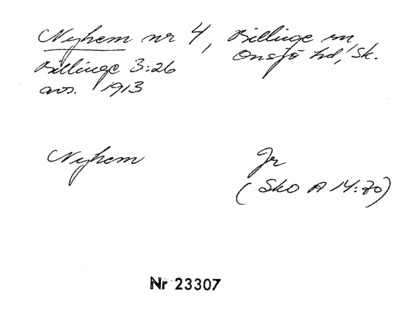 Nyhem nr 4, Billinge sn
Billinge 3:26 Onsjö hd, Sk.
avs. 1913
Nyhem Jr
(Sko A 14:70)
Nr 23307